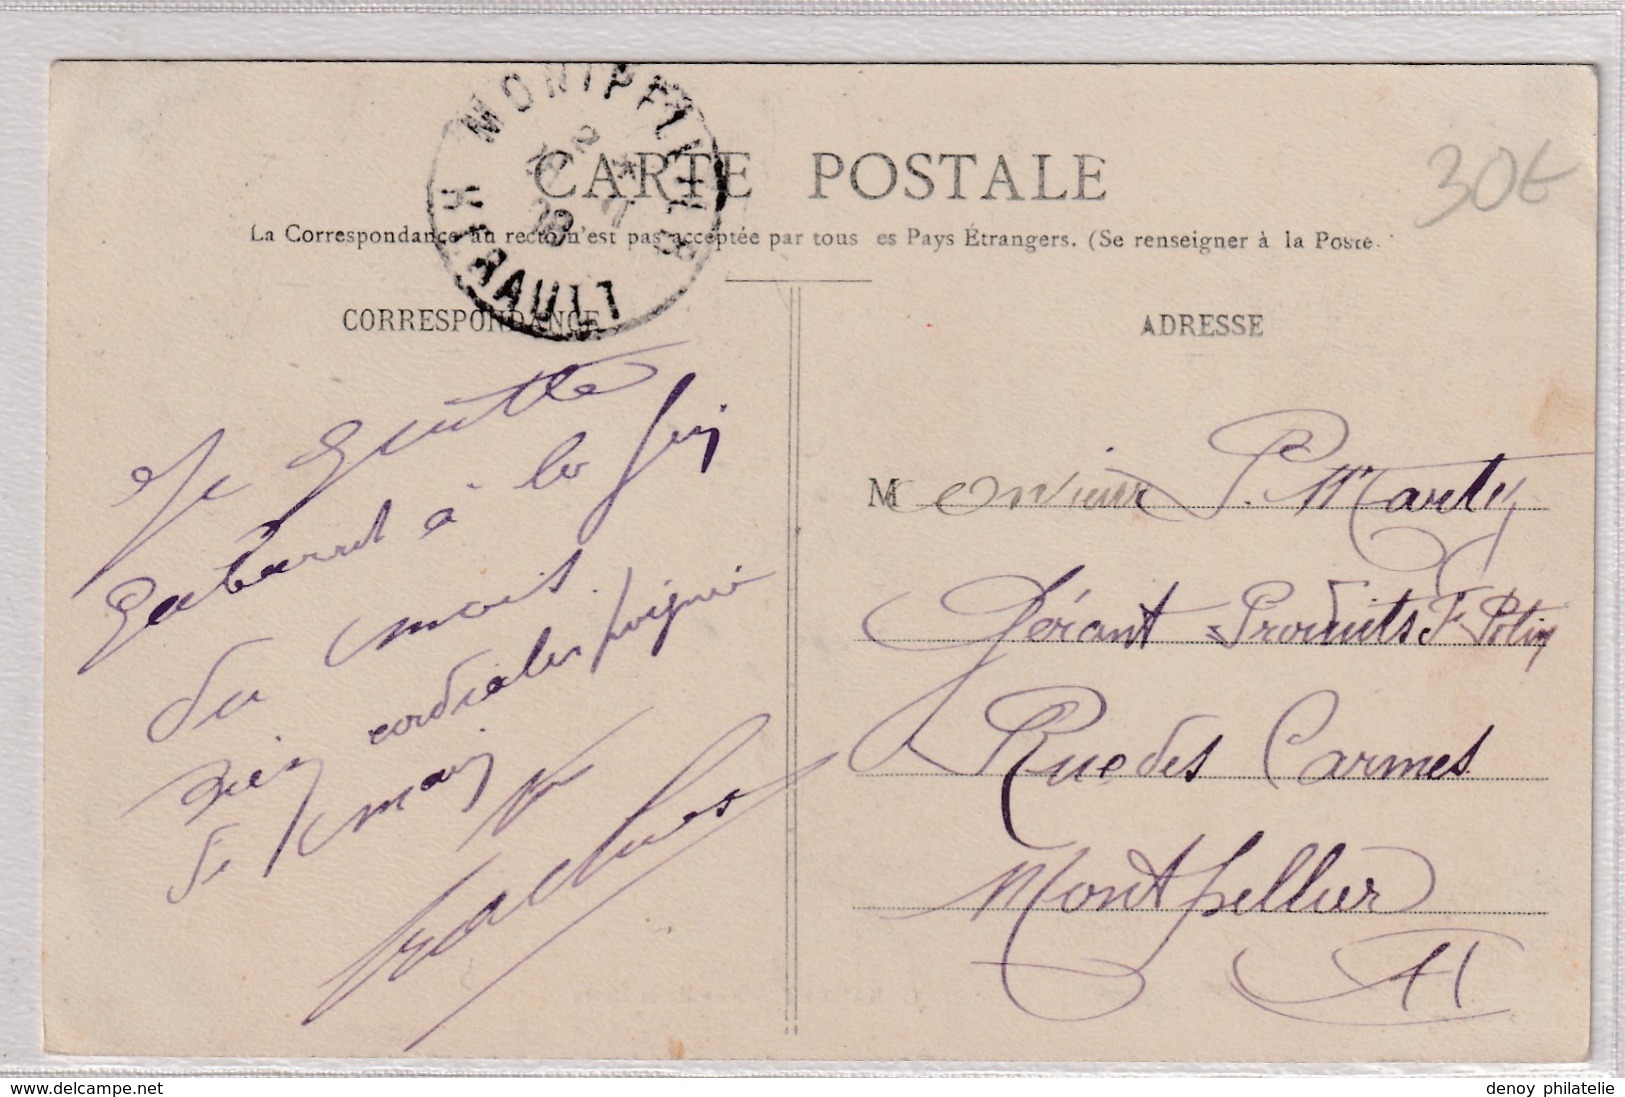 MONTPELLIER
HERAULT
CARTE POSTALE
30€
La Correspondance au recto n'est pas acceptée par tous es Pays Étrangers. (Se renseigner à la Poste.
CORRESPONDANCE
Je quitte
Gabarret à la fin
du mois.
Bien cordiales poignée
de main
ADRESSE
Monsieur P. Marty
Gérant Produits F Potin
Rue des Carmes
Montpellier
www.delcampe.net
denoy philatelie